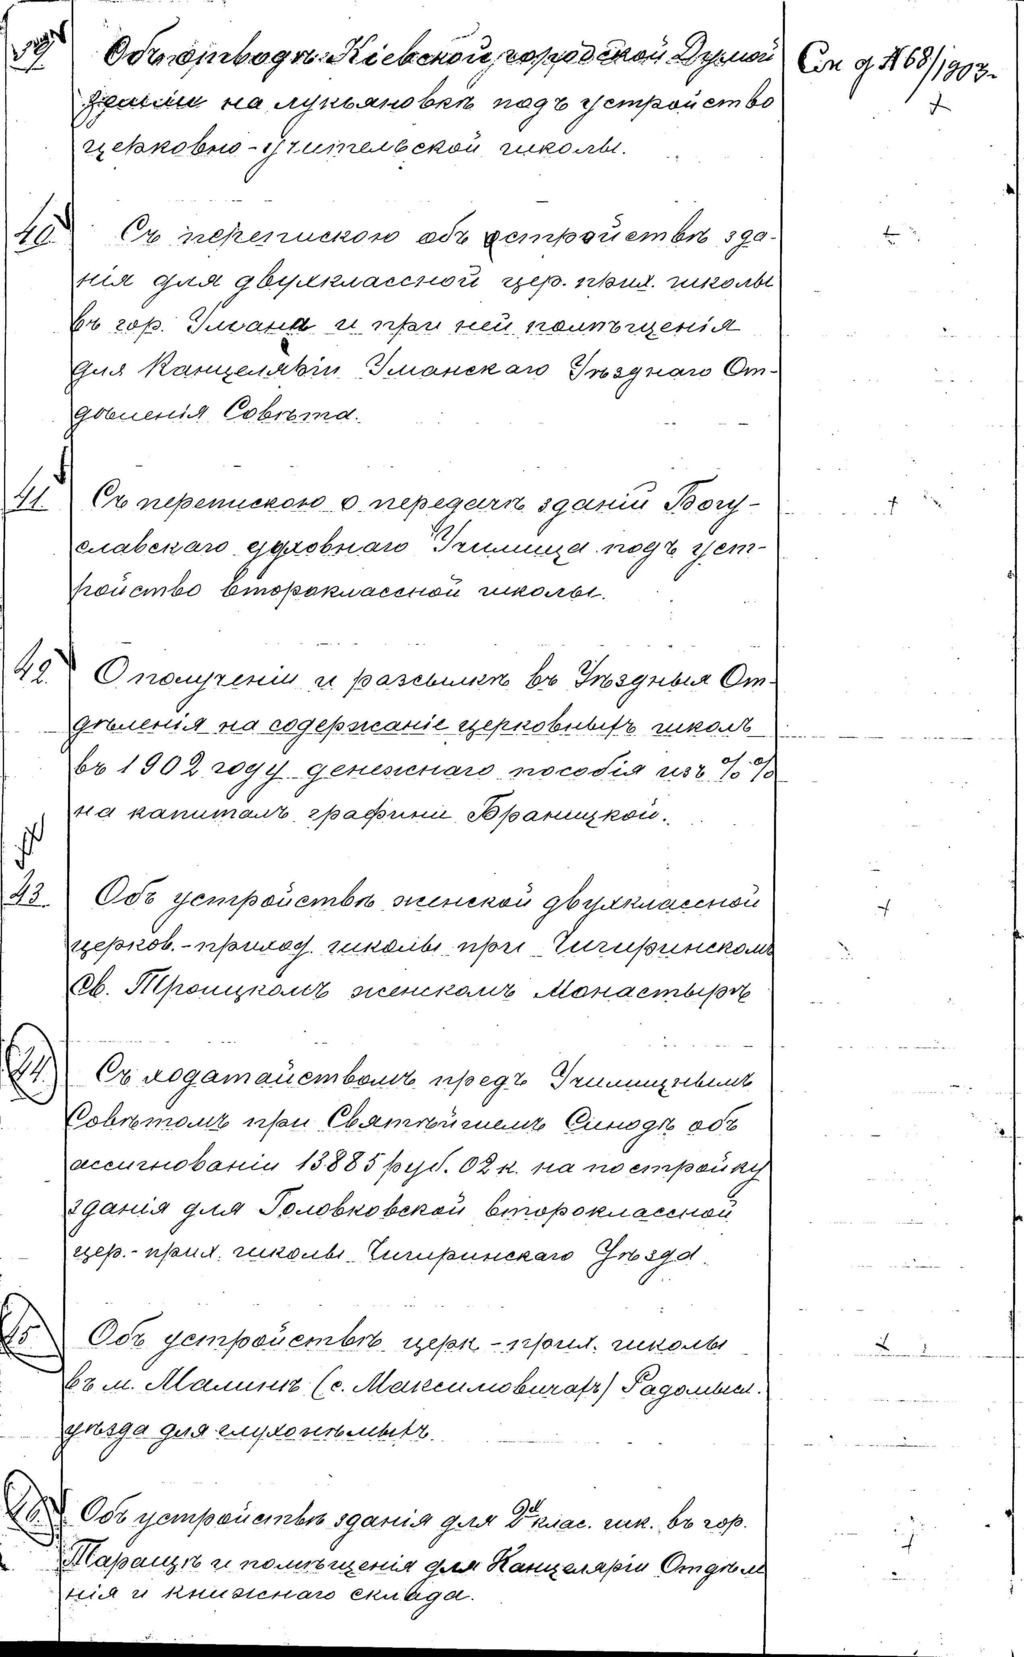 39 Объ отводѣ Кіевской городской Думой См д № 68/1903 г.
земли на лукьяновкѣ подъ устройство +
церковно-учительской школы.
40. Съ перепискою объ устройствѣ зда- +
нія для двухклассной цер. прих. школы
въ гор. Умани и при ней помѣщенія
для Канцеляріи Уманскаго Уѣзднаго От-
дѣленія Совѣта.
41. Съ перепискою о передачѣ зданій Богу- +
славскаго духовнаго Училища подъ уст-
ройство второклассной школы.
42. О полученіи и разсылкѣ въ Уѣздныя От-
дѣленія на содержаніе церковныхъ школъ
въ 1902 году денежнаго пособія изъ %%
на капиталъ графини Браницкой.
43. Объ устройствѣ женской двухклассной +
церков.-приход. школы при Чигиринскомъ
Св. Троицкомъ женскомъ Монастырѣ
44. Съ ходатайствомъ предъ Училищнымъ
Совѣтомъ при Святѣйшемъ Синодѣ объ
ассигнованіи 13885 руб. 02 к. на постройку
зданія для Головковской второклассной
цер.-прих. школы Чигиринскаго Уѣзда.
45. Объ устройствѣ церк.-прих. школы +
въ м. Малинѣ (с. Максимовичахъ) Радомысл.
уѣзда для глухонѣмыхъ.
46. Объ устройствѣ зданія для 2хъ клас. шк. въ гор.
Таращѣ и помѣщенія для Канцеляріи Отдѣле +
нія и книжнаго склада.